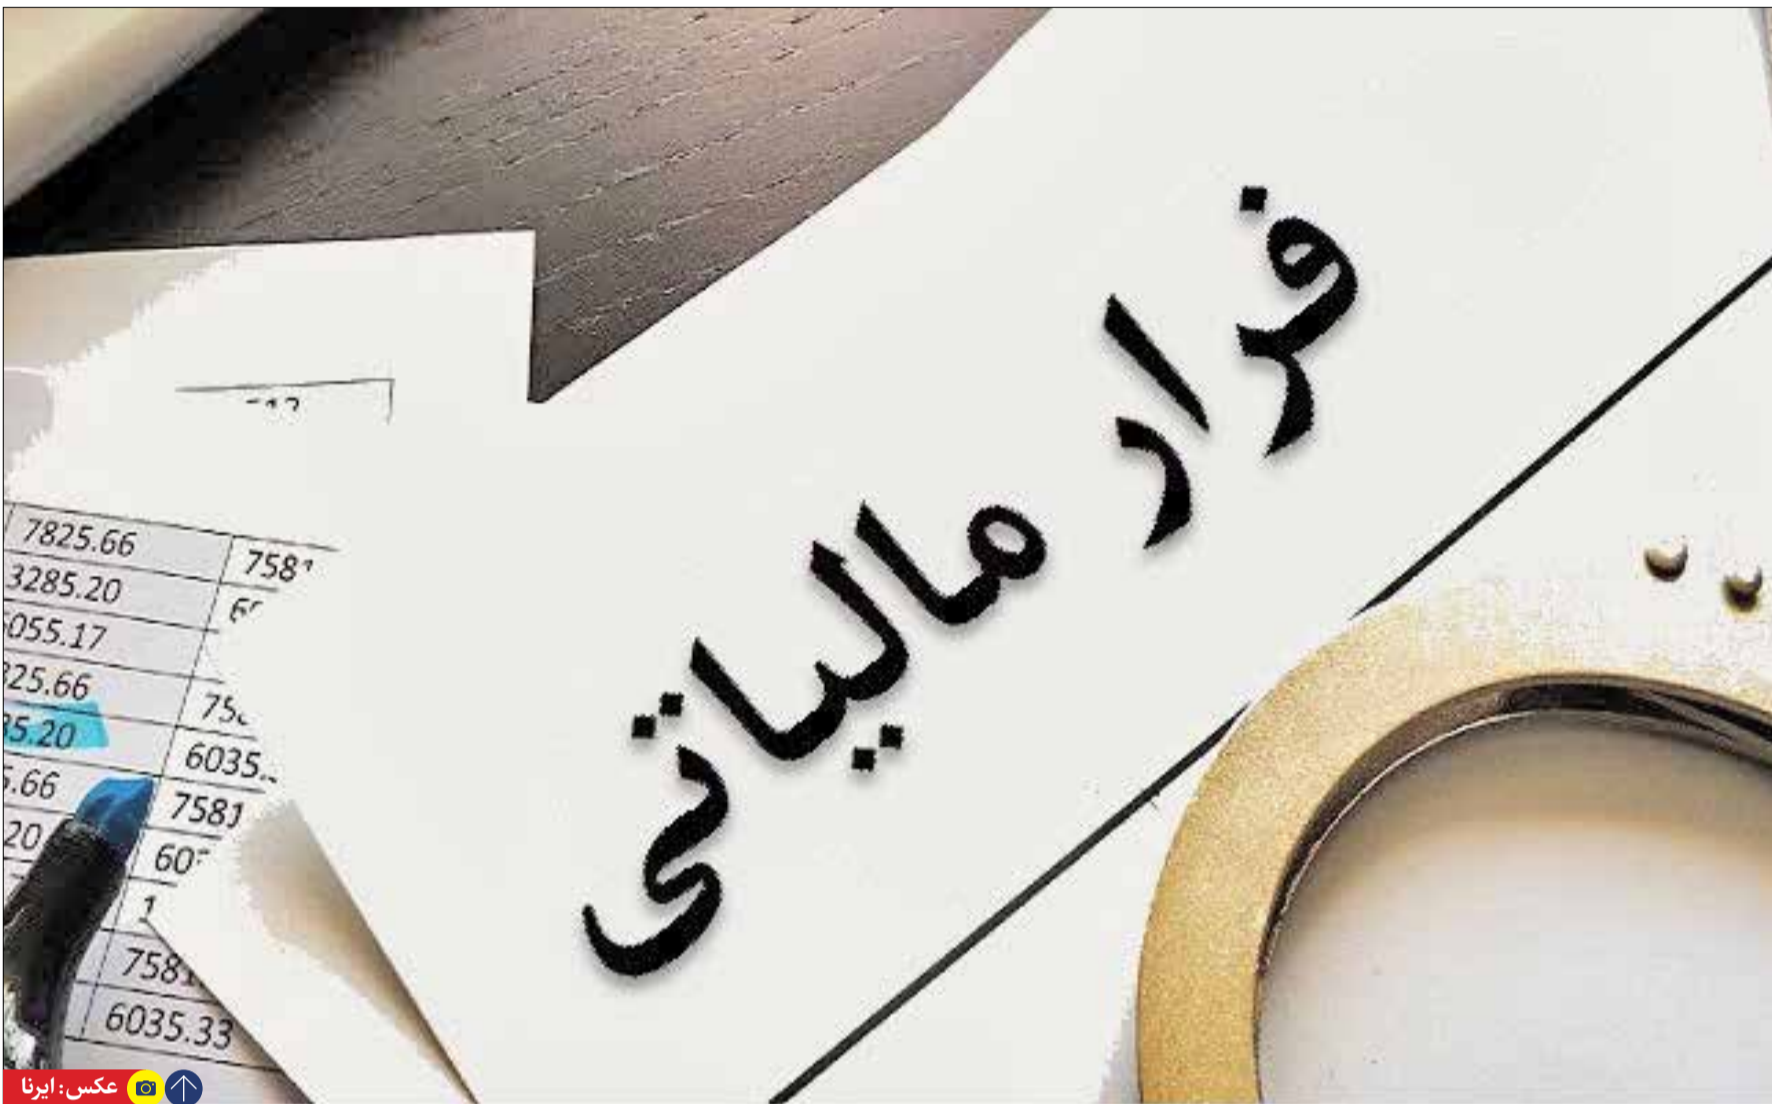 فرار مالیاتی
7825.66 758
3285.20
055.17
25.66
5.20 6035
.66 7581
20
1
758
6035.33
عکس: ایرنا